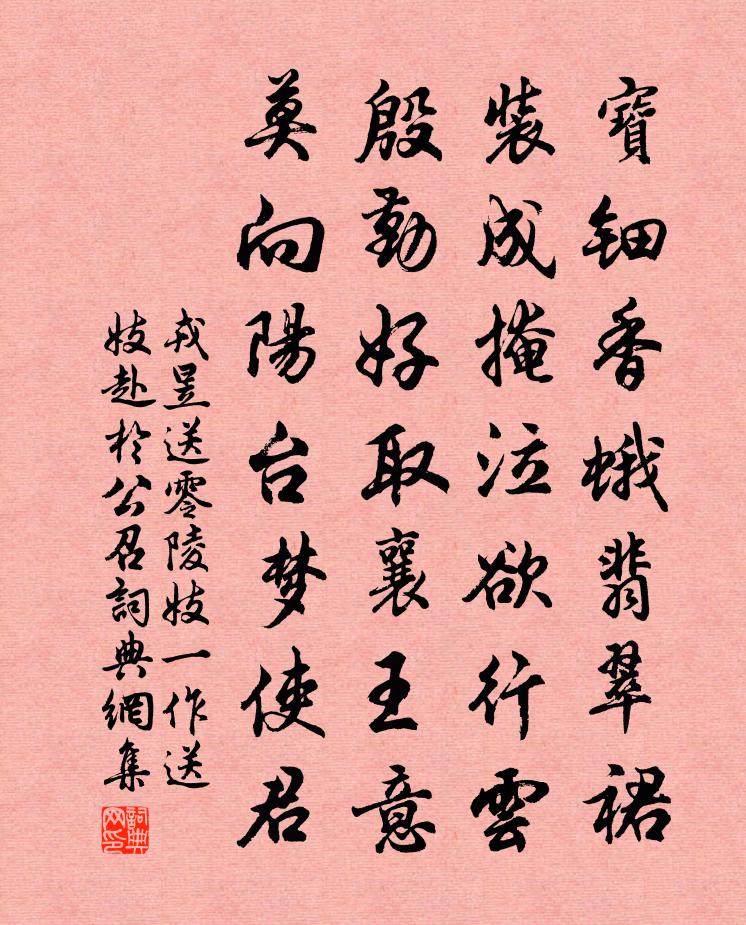 寶鈿香蛾翡翠裙
裝成掩泣欲行雲
殷勤好取襄王意
莫向陽台梦使君
戎昱送零陵妓一作送
妓赴於公召詞典網集
詞典网印